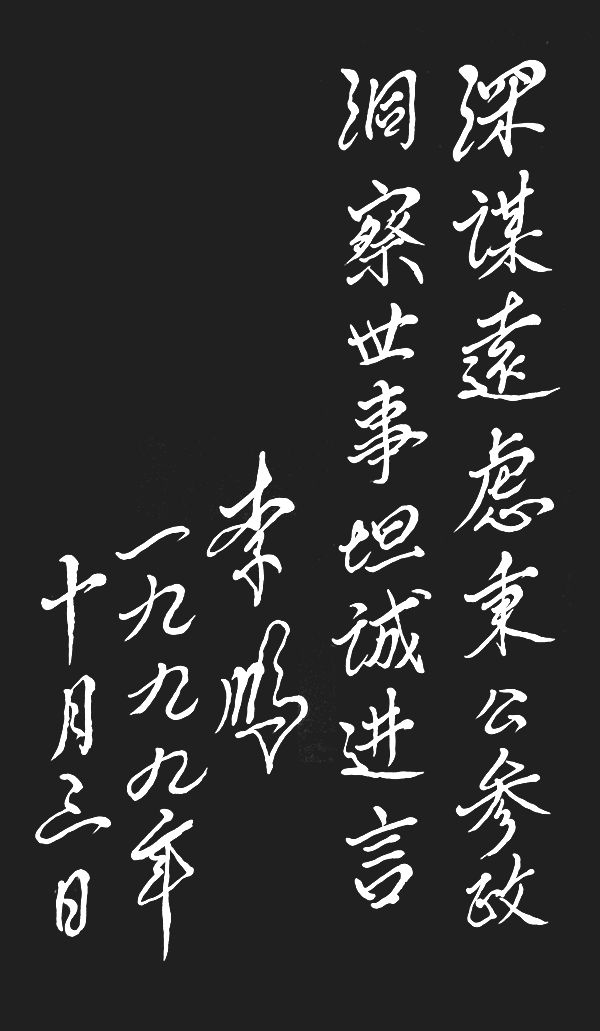 深谋遠虑秉公参政
洞察世事坦诚进言
李鹏
一九九九年
十月三日